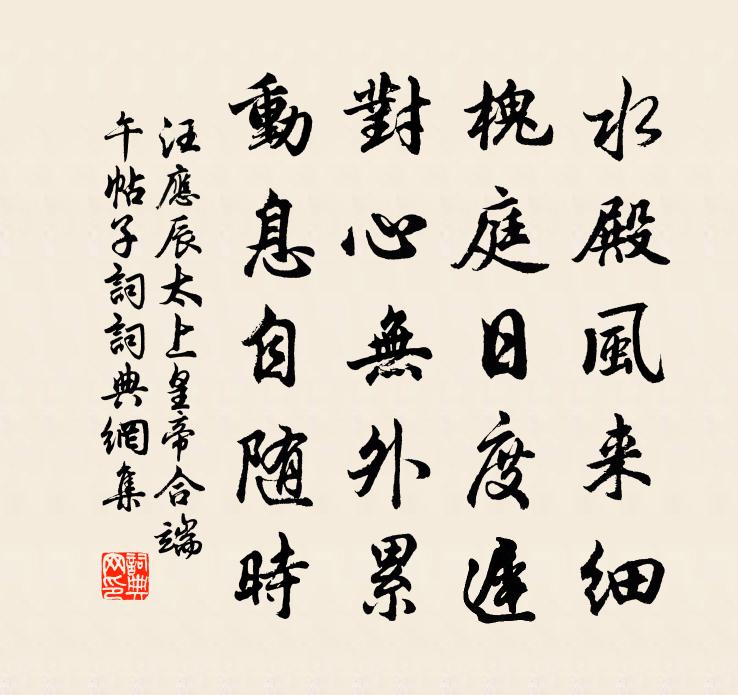 水殿風来細
槐庭日度遲
對心無外累
動息自随時
汪應辰太上皇帝合端
午帖子詞詞典網集
詞典
网印